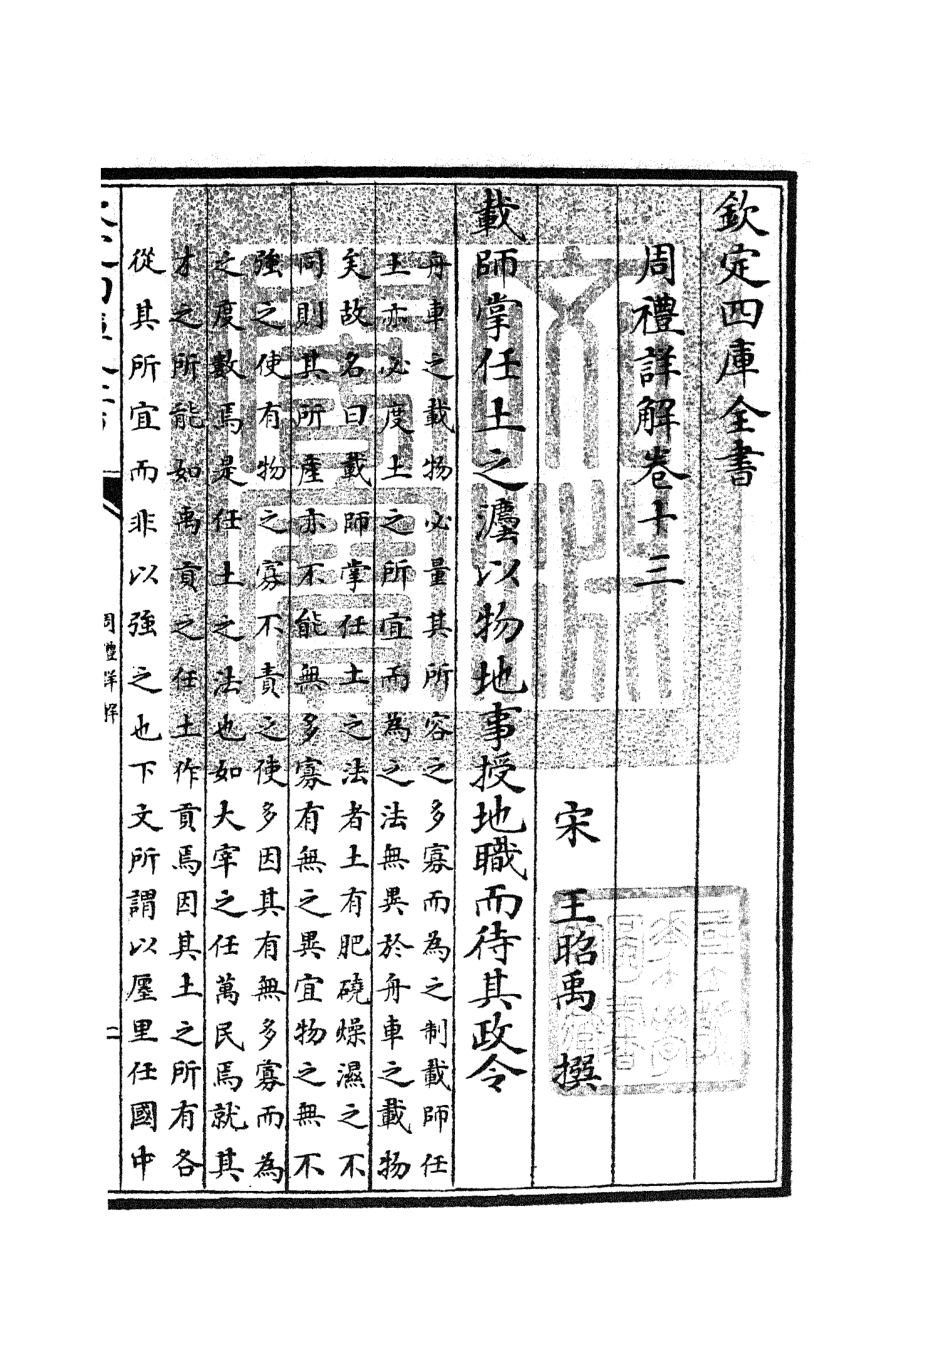 欽定四庫全書
周禮詳解卷十三
宋 王昭禹 撰
載師掌任土之灋以物地事授地職而待其政令
舟車之載物必量其所容之多寡而為之制載師任
土亦必度土之所宜而為之法無異於舟車之載物
矣故名曰載師掌任土之法者土有肥磽燥濕之不
同則其所產亦不能無多寡有無之異宜物之無不
強之使有物之寡不責之使多因其有無多寡而為
之度數焉是任土之法也如大宰之任萬民焉就其
才之所能如禹貢之任土作貢焉因其土之所有各
從其所宜而非以強之也下文所謂以廛里任國中
周禮詳解
文淵閣寶